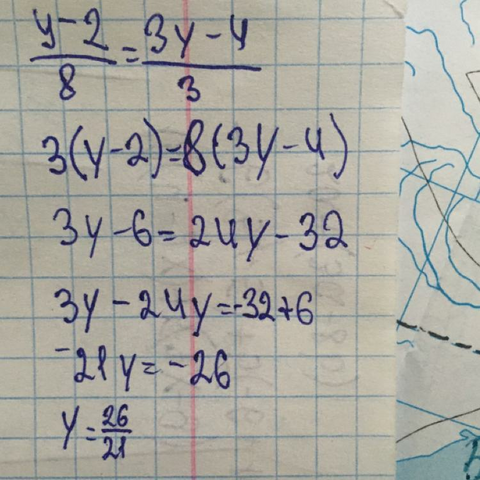 y-2/8 = 3y-4/3
3(y-2)=8(3y-4)
3y-6=24y-32
3y-24y=-32+6
-21y=-26
y=26/21